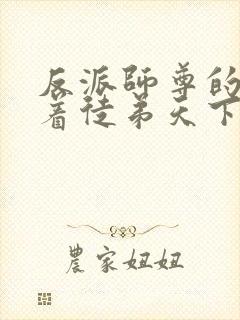 反派師尊的
着徒弟天下
農家妞妞